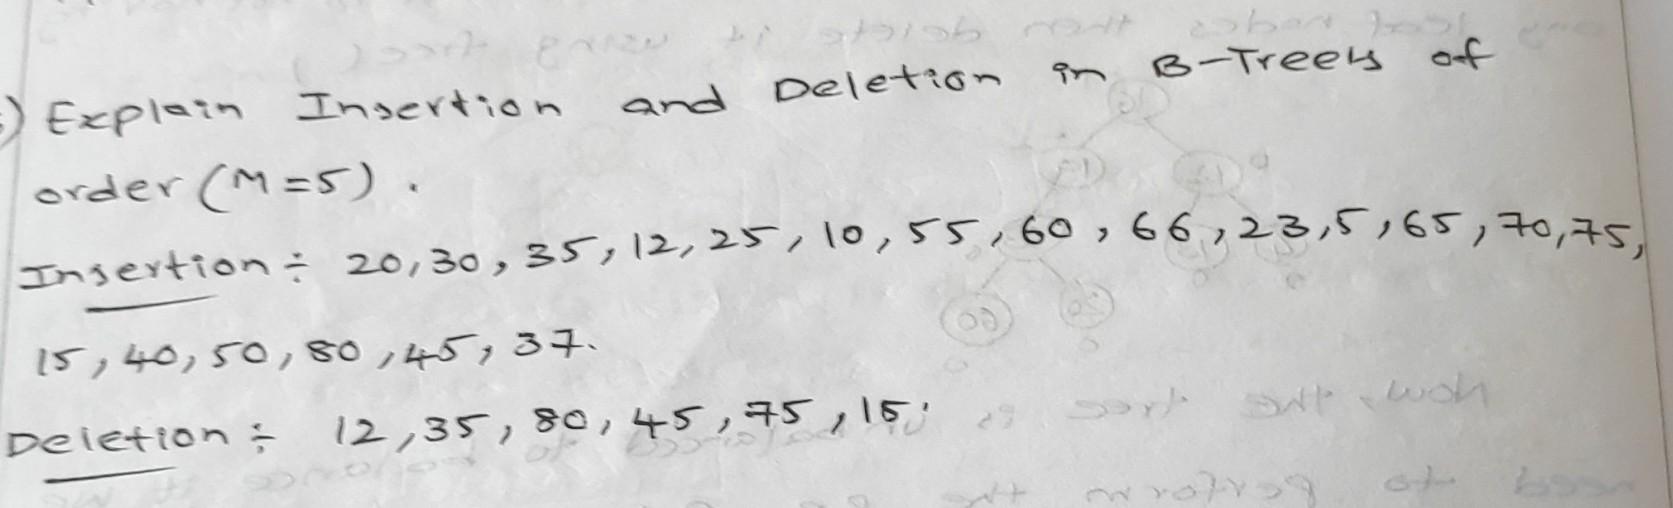 ) Explain Insertion and Deletion in B-Trees of
order (M=5).
Insertion ÷ 20,30,35,12,25,10,55,60,66,23,5,65,70,75,
15,40,50,80,45,37.
Deletion ÷ 12,35,80,45,75,15;